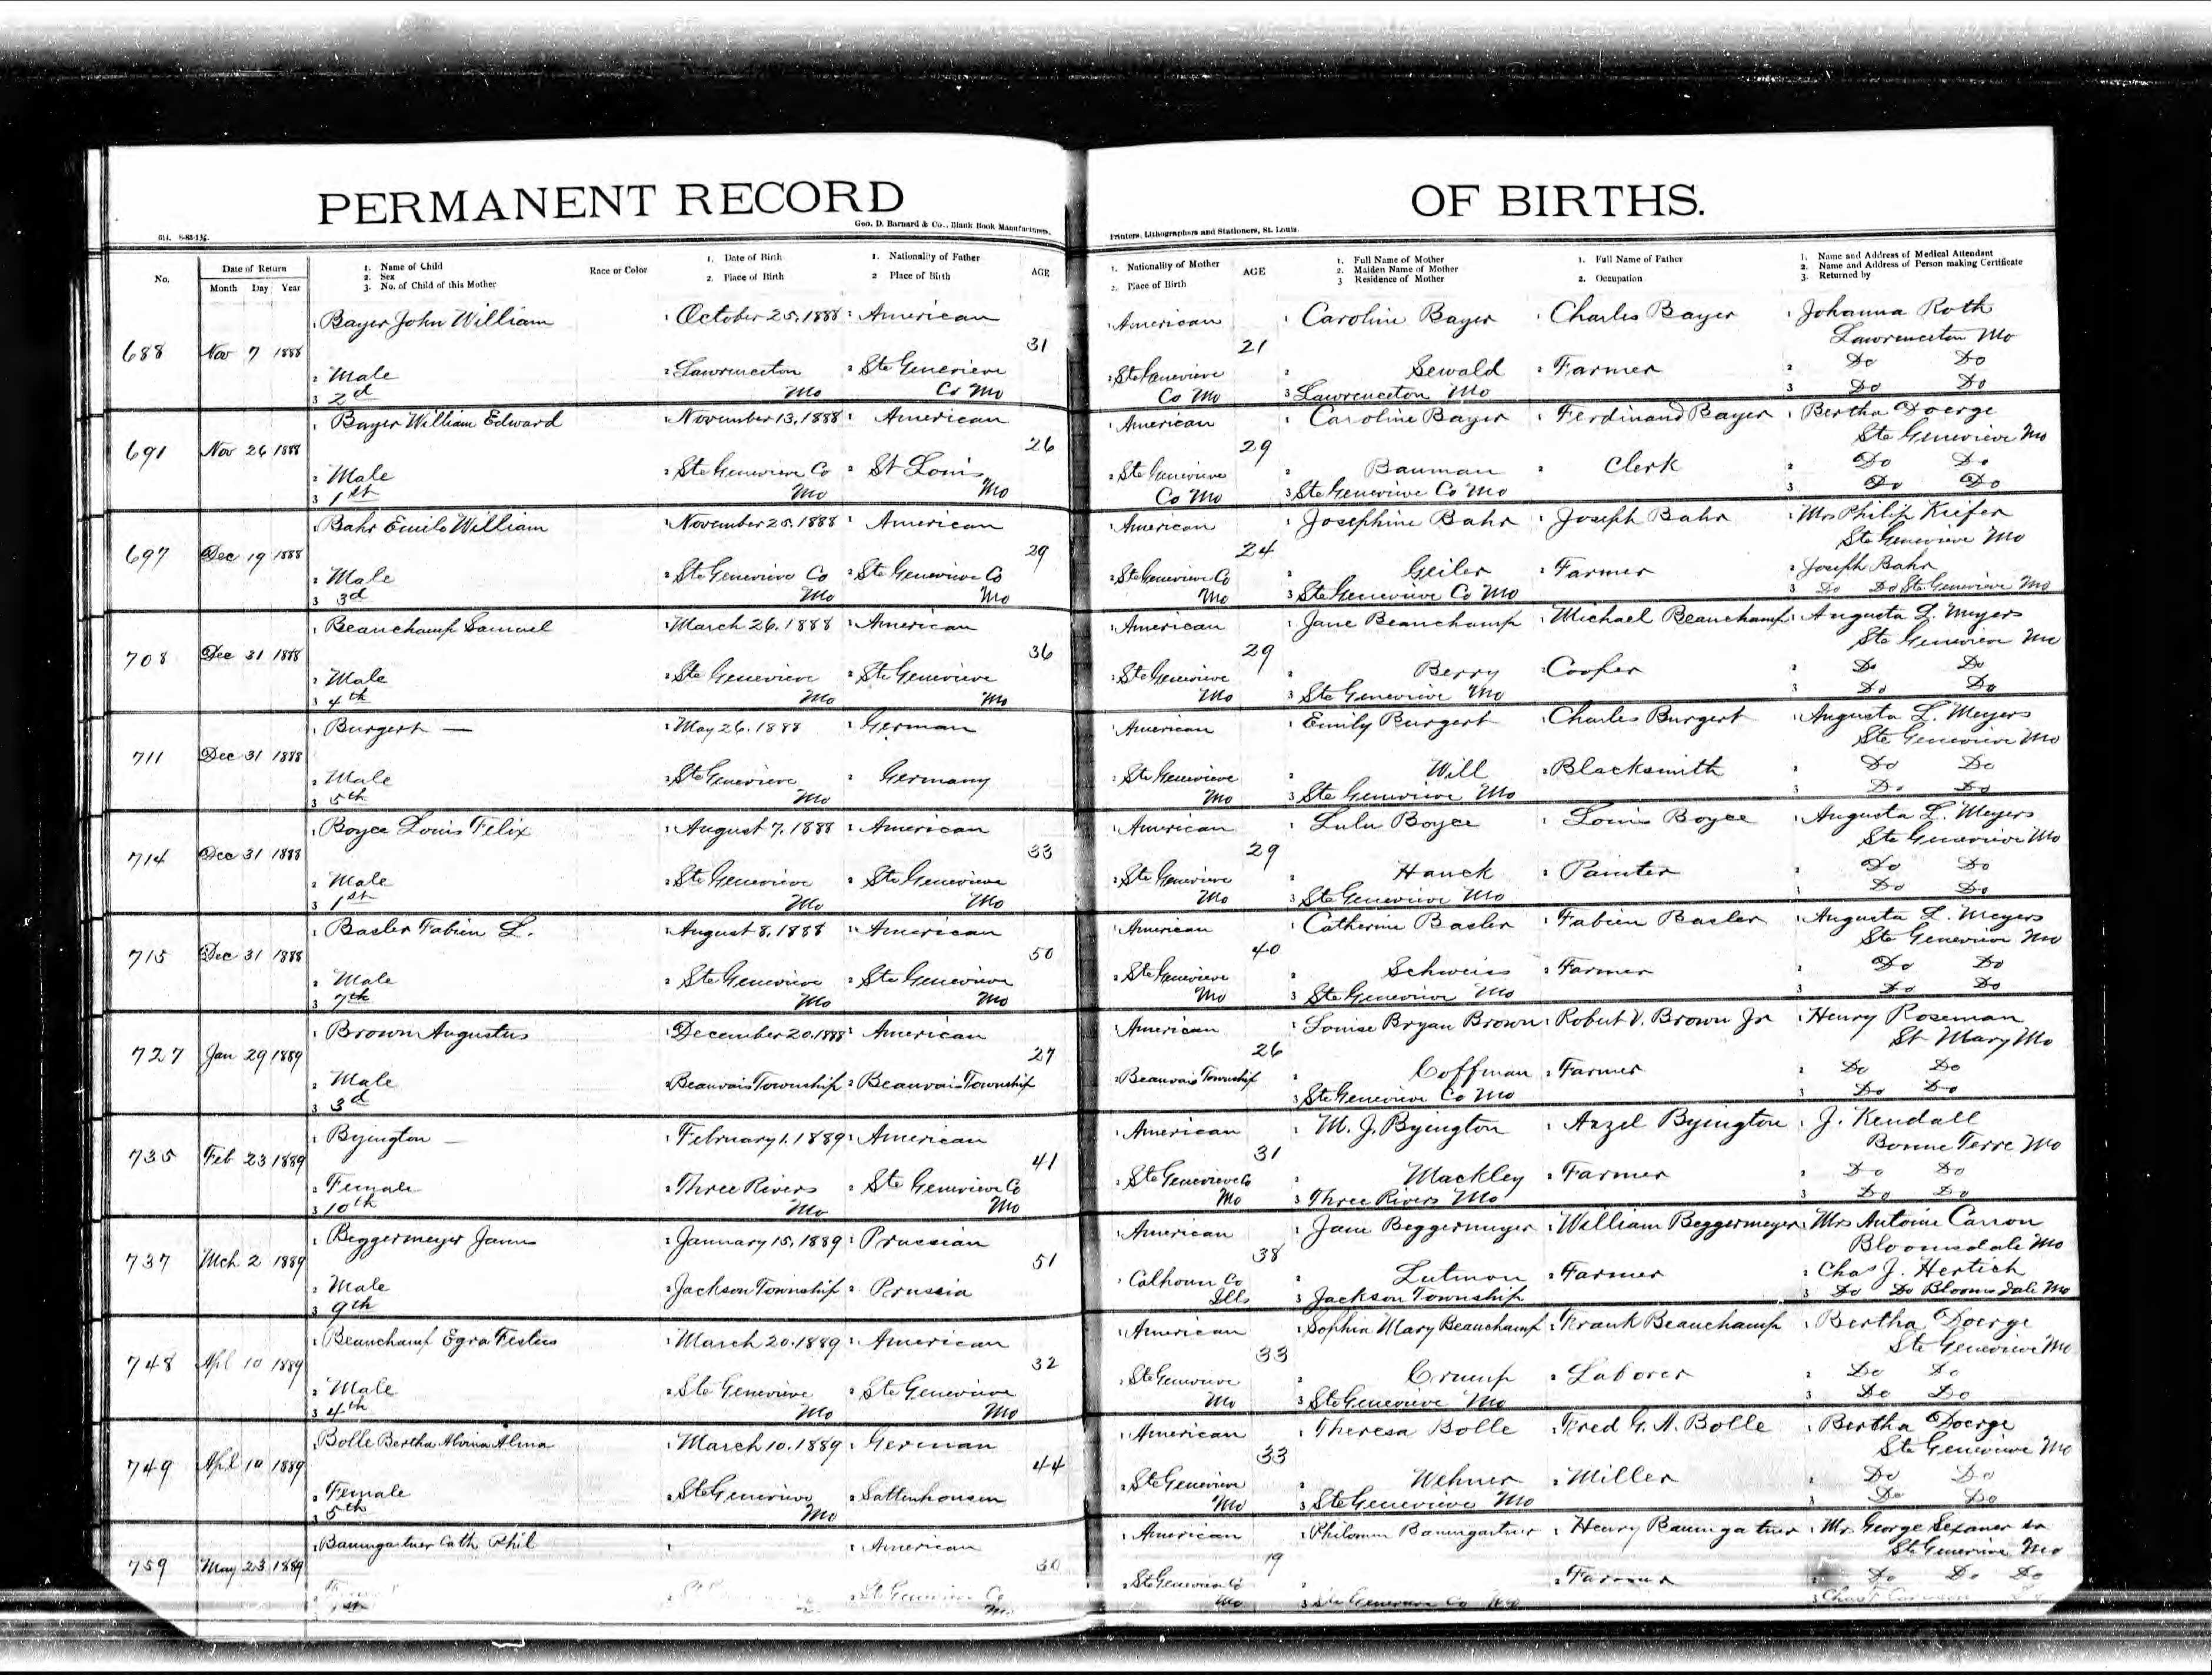 PERMANENT RECORD OF BIRTHS.
614. 8-83-1½. Geo. D. Barnard & Co., Blank Book Manufacturers, Printers, Lithographers and Stationers, St. Louis.
No. Date of Return Month Day Year 1. Name of Child 2. Sex 3. No. of Child of this Mother Race or Color 1. Date of Birth 2. Place of Birth 1. Nationality of Father 2 Place of Birth AGE 1. Nationality of Mother 2. Place of Birth AGE 1. Full Name of Mother 2. Maiden Name of Mother 3 Residence of Mother 1. Full Name of Father 2. Occupation 1. Name and Address of Medical Attendant 2. Name and Address of Person making Certificate 3. Returned by
1 Bayer John William 1 October 25, 1888 1 American 1 American 1 Caroline Bayer 1 Charles Bayer 1 Johanna Roth
688 Nov 7 1888 31 21 Lawrenceton Mo
2 Male 2 Lawrenceton 2 Ste Genevieve 2 Ste Genevieve 2 Sewald 2 Farmer 2 Do Do
3 2d Mo Co Mo Co Mo 3 Lawrenceton Mo 3 Do Do
1 Bayer William Edward 1 November 13, 1888 1 American 1 American 1 Caroline Bayer 1 Ferdinand Bayer 1 Bertha Doerge
691 Nov 26 1888 26 29 Ste Genevieve Mo
2 Male 2 Ste Genevieve Co 2 St Louis 2 Ste Genevieve 2 Bauman 2 Clerk 2 Do Do
3 1st Mo Mo Co Mo 3 Ste Genevieve Co Mo 3 Do Do
1 Bahr Emile William 1 November 25, 1888 1 American 1 American 1 Josephine Bahr 1 Joseph Bahr 1 Mrs Philip Kiefer
697 Dec 19 1888 29 24 Ste Genevieve Mo
2 Male 2 Ste Genevieve Co 2 Ste Genevieve Co 2 Ste Genevieve Co 2 Geiler 2 Farmer 2 Joseph Bahr
3 3d Mo Mo Mo 3 Ste Genevieve Co Mo 3 Do Do Ste Genevieve Mo
1 Beauchamp Samuel 1 March 26, 1888 1 American 1 American 1 Jane Beauchamp 1 Michael Beauchamp 1 Augusta L. Meyers
708 Dec 31 1888 36 29 Ste Genevieve Mo
2 Male 2 Ste Genevieve 2 Ste Genevieve 2 Ste Genevieve 2 Berry 2 Cooper 2 Do Do
3 4th Mo Mo Mo 3 Ste Genevieve Mo 3 Do Do
1 Burgert — 1 May 26, 1888 1 German 1 American 1 Emily Burgert 1 Charles Burgert 1 Augusta L. Meyers
711 Dec 31 1888 Ste Genevieve Mo
2 Male 2 Ste Genevieve 2 Germany 2 Ste Genevieve 2 Will 2 Blacksmith 2 Do Do
3 5th Mo Mo 3 Ste Genevieve Mo 3 Do Do
1 Boyce Louis Felix 1 August 7, 1888 1 American 1 American 1 Lulu Boyce 1 Louis Boyce 1 Augusta L. Meyers
714 Dec 31 1888 33 29 Ste Genevieve Mo
2 Male 2 Ste Genevieve 2 Ste Genevieve 2 Ste Genevieve 2 Hauck 2 Painter 2 Do Do
3 1st Mo Mo Mo 3 Ste Genevieve Mo 3 Do Do
1 Basler Fabien L. 1 August 8, 1888 1 American 1 American 1 Catherine Basler 1 Fabien Basler 1 Augusta L. Meyers
715 Dec 31 1888 50 40 Ste Genevieve Mo
2 Male 2 Ste Genevieve 2 Ste Genevieve 2 Ste Genevieve 2 Schweiss 2 Farmer 2 Do Do
3 7th Mo Mo Mo 3 Ste Genevieve Mo 3 Do Do
1 Brown Augustus 1 December 20, 1888 1 American 1 American 1 Louise Bryan Brown 1 Robert V. Brown Jr 1 Henry Roseman
727 Jan 29 1889 27 26 St Mary Mo
2 Male 2 Beauvais Township 2 Beauvais Township 2 Beauvais Township 2 Coffman 2 Farmer 2 Do Do
3 3d 3 Ste Genevieve Co Mo 3 Do Do
1 Byington — 1 February 1, 1889 1 American 1 American 1 M. J. Byington 1 Anzel Byington 1 J. Kendall
735 Feb 23 1889 41 31 Bonne Terre Mo
2 Female 2 Three Rivers 2 Ste Genevieve Co 2 Ste Genevieve Co 2 Mackley 2 Farmer 2 Do Do
3 10th Mo Mo Mo 3 Three Rivers Mo 3 Do Do
1 Beggermeyer James 1 January 15, 1889 1 Prussian 1 American 1 Jane Beggermeyer 1 William Beggermeyer 1 Mrs Antoine Carron
737 Mch 2 1889 51 38 Bloomsdale Mo
2 Male 2 Jackson Township 2 Prussia 2 Calhoun Co 2 Lutmon 2 Farmer 2 Chas J. Hertich
3 9th Ills 3 Jackson Township 3 Do Do Bloomsdale Mo
1 Beauchamp Egra Festus 1 March 20, 1889 1 American 1 American 1 Sophia Mary Beauchamp 1 Frank Beauchamp 1 Bertha Doerge
748 Apl 10 1889 32 33 Ste Genevieve Mo
2 Male 2 Ste Genevieve 2 Ste Genevieve 2 Ste Genevieve 2 Crump 2 Laborer 2 Do Do
3 4th Mo Mo Mo 3 Ste Genevieve Mo 3 Do Do
1 Bolle Bertha Alvina Alma 1 March 10, 1889 1 German 1 American 1 Theresa Bolle 1 Fred G. A. Bolle 1 Bertha Doerge
749 Apl 10 1889 44 33 Ste Genevieve Mo
2 Female 2 Ste Genevieve 2 Sattenhousen 2 Ste Genevieve 2 Wehner 2 Miller 2 Do Do
3 5th Mo Mo 3 Ste Genevieve Mo 3 Do Do
1 Baumgartner Cath Phil 1 1 American 1 American 1 Philomen Baumgartner 1 Henry Baumgartner 1 Mr. George Sexaner Sr
759 May 23 1889 30 19 Ste Genevieve Mo
2 Ste Genevieve Co 2 Ste Genevieve Co 2 2 Farmer 2 Do Do Do
3 1st Mo Mo 3 Ste Genevieve Co Mo 3 Chas